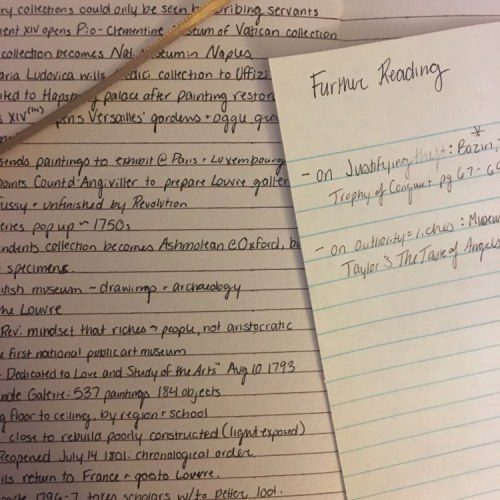 ry collections could only be seen b ribing servants
ent XIV opens Pio-Clementine useum of Vatican collection
collection becomes Nat. useum in Naples
aria Ludovica wills edici collection to Uffizi
ited to Hapsb g palace after painting restor
s XIV ens Versailles' gardens +
sends paintings to exhibit @ Paris + Luxembourg
oints Count d'Angiviller to prepare Louvre galler
fussy + unfinished by Revolution
eries pop up ~ 1750s
ndents collection becomes Ashmolean @ Oxford, bu
specimens.
itish museum - drawings + archaeology
he Louvre
Rev. mindset that riches → people, not aristocratic
e first national public art museum
- Dedicated to Love and Study of the Arts" Aug 10 1793
nde Galerie: 537 paintings 184 objects
g floor to ceiling, by region + school
close to rebuild poorly constructed (light exposed)
Reopened July 14 1801: chronological order
ils return to France + go to Louvre.
1796-7 takes scholars w/ to better loot.
Further Reading
- on Justifying theft: Bazin,
Trophy of Conquest pg 67-6
- on authority = riches: Museu
Taylor's The Taste of Angels